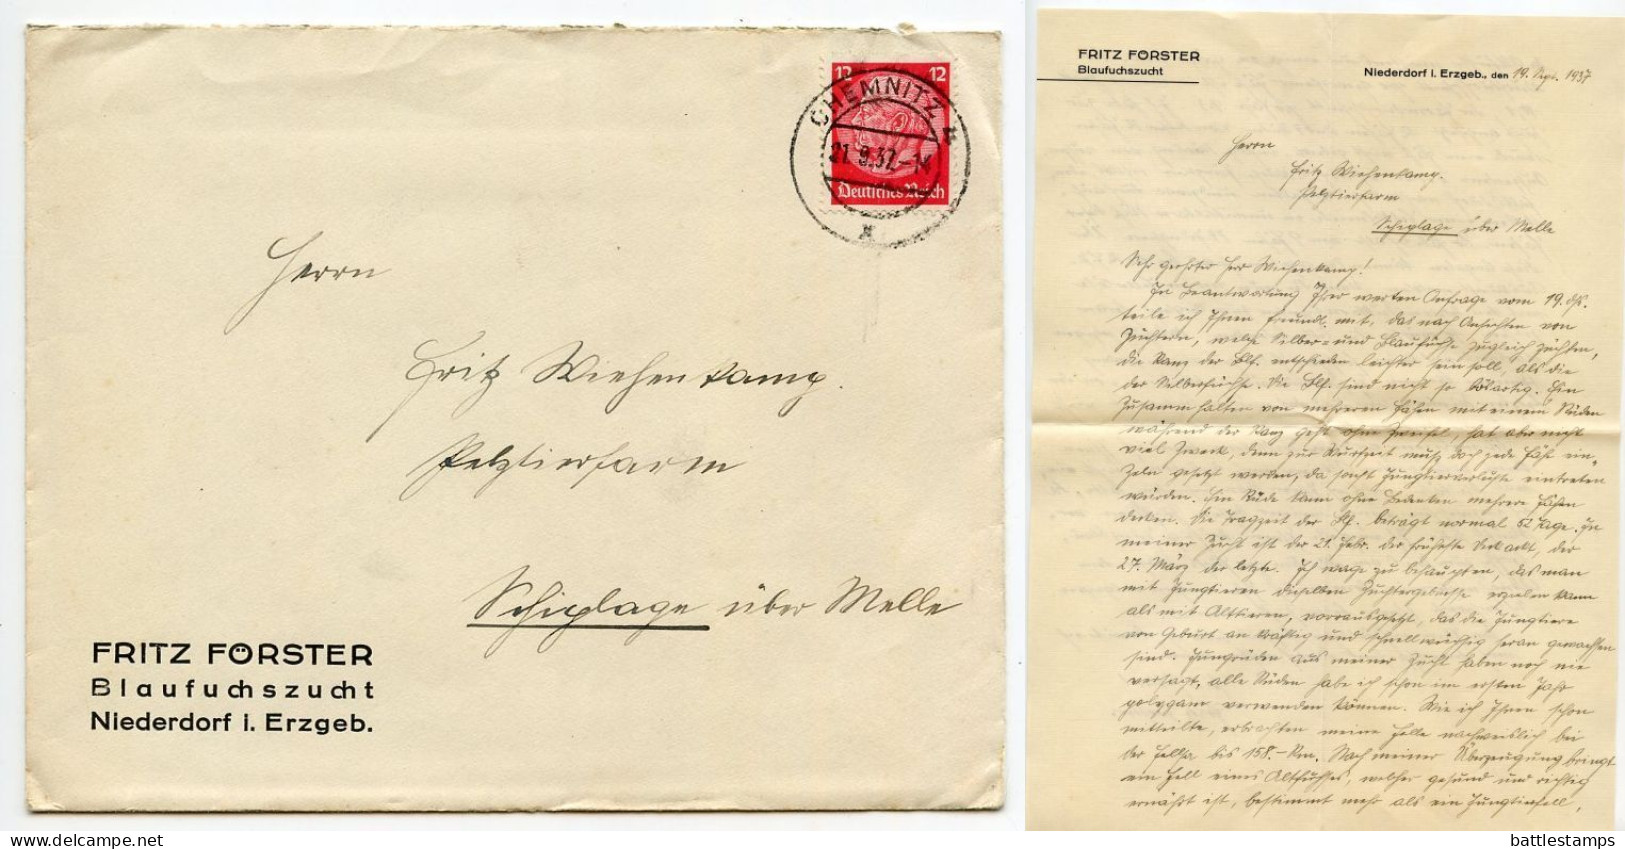 12 12
CHEMNITZ
21.9.37.-14
Deutsches Reich
Herrn
Fritz Wiehenkamp.
Pelztierfarm
Schiplage über Melle
FRITZ FÖRSTER
Blaufuchszucht
Niederdorf i. Erzgeb.
FRITZ FÖRSTER
Blaufuchszucht
Niederdorf i. Erzgeb., den 19. Sept. 1937
Herrn
Fritz Wiehenkamp.
Pelztierfarm
Schiplage über Melle
Sehr geehrter Herr Wiehenkamp!
In Beantwortung Ihrer werten Anfrage vom 19. ds.
teile ich Ihnen freundl. mit, das nach Ansichten von
Züchtern, welche Silber= und Blaufüchse zugleich züchten,
die Ranz der Blf. entschieden leichter sein soll, als die
der Silberfüchse. Die Blf. sind nicht so bösartig. Ein
Zusammenhalten von mehreren Fähen mit einem Rüden
während der Ranz geht ohne Zweifel, hat aber nicht
viel Zweck, denn zur Wurfzeit muß doch jede Fähe ein-
zeln gesetzt werden, da sonst Jungtierverluste eintreten
würden. Ein Rüde kann ohne Bedenken mehrere Fähen
decken. Die Tragzeit der Blf. beträgt normal 52 Tage. In
meiner Zucht ist der 21. Febr. der früheste Deckakt, der
27. März der letzte. Ich wage zu behaupten, das man
mit Jungtieren dieselben Zuchtergebnisse erzielen kann
als mit Alttieren, vorrausgesetzt, das die Jungtiere
von Geburt an kräftig und schnellwüchsig heran gewachsen
sind. Jungrüden aus meiner Zucht haben noch nie
versagt, alle Rüden habe ich schon im ersten Jahr
polygam verwenden können. Wie ich Ihnen schon
mitteilte, erbrachten meine Felle nachweislich bei
der bis 158.- Rm. Nach meiner Überzeugung bringt
ein Fell eines Altfuchses, welcher gesund und richtig
ernährt ist, bestimmt mehr als ein Jungtierfell,
battlestamps